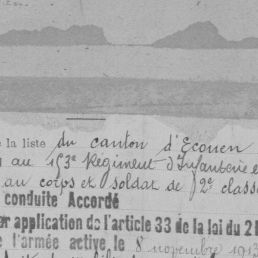 la liste du canton d'Ecouen
au 153e Régiment d'Infanterie
au corps et soldat de 2e classe
conduite Accordé
er application de l'article 33 de la loi du 2
e l'armée active, le 8 novembre 1913